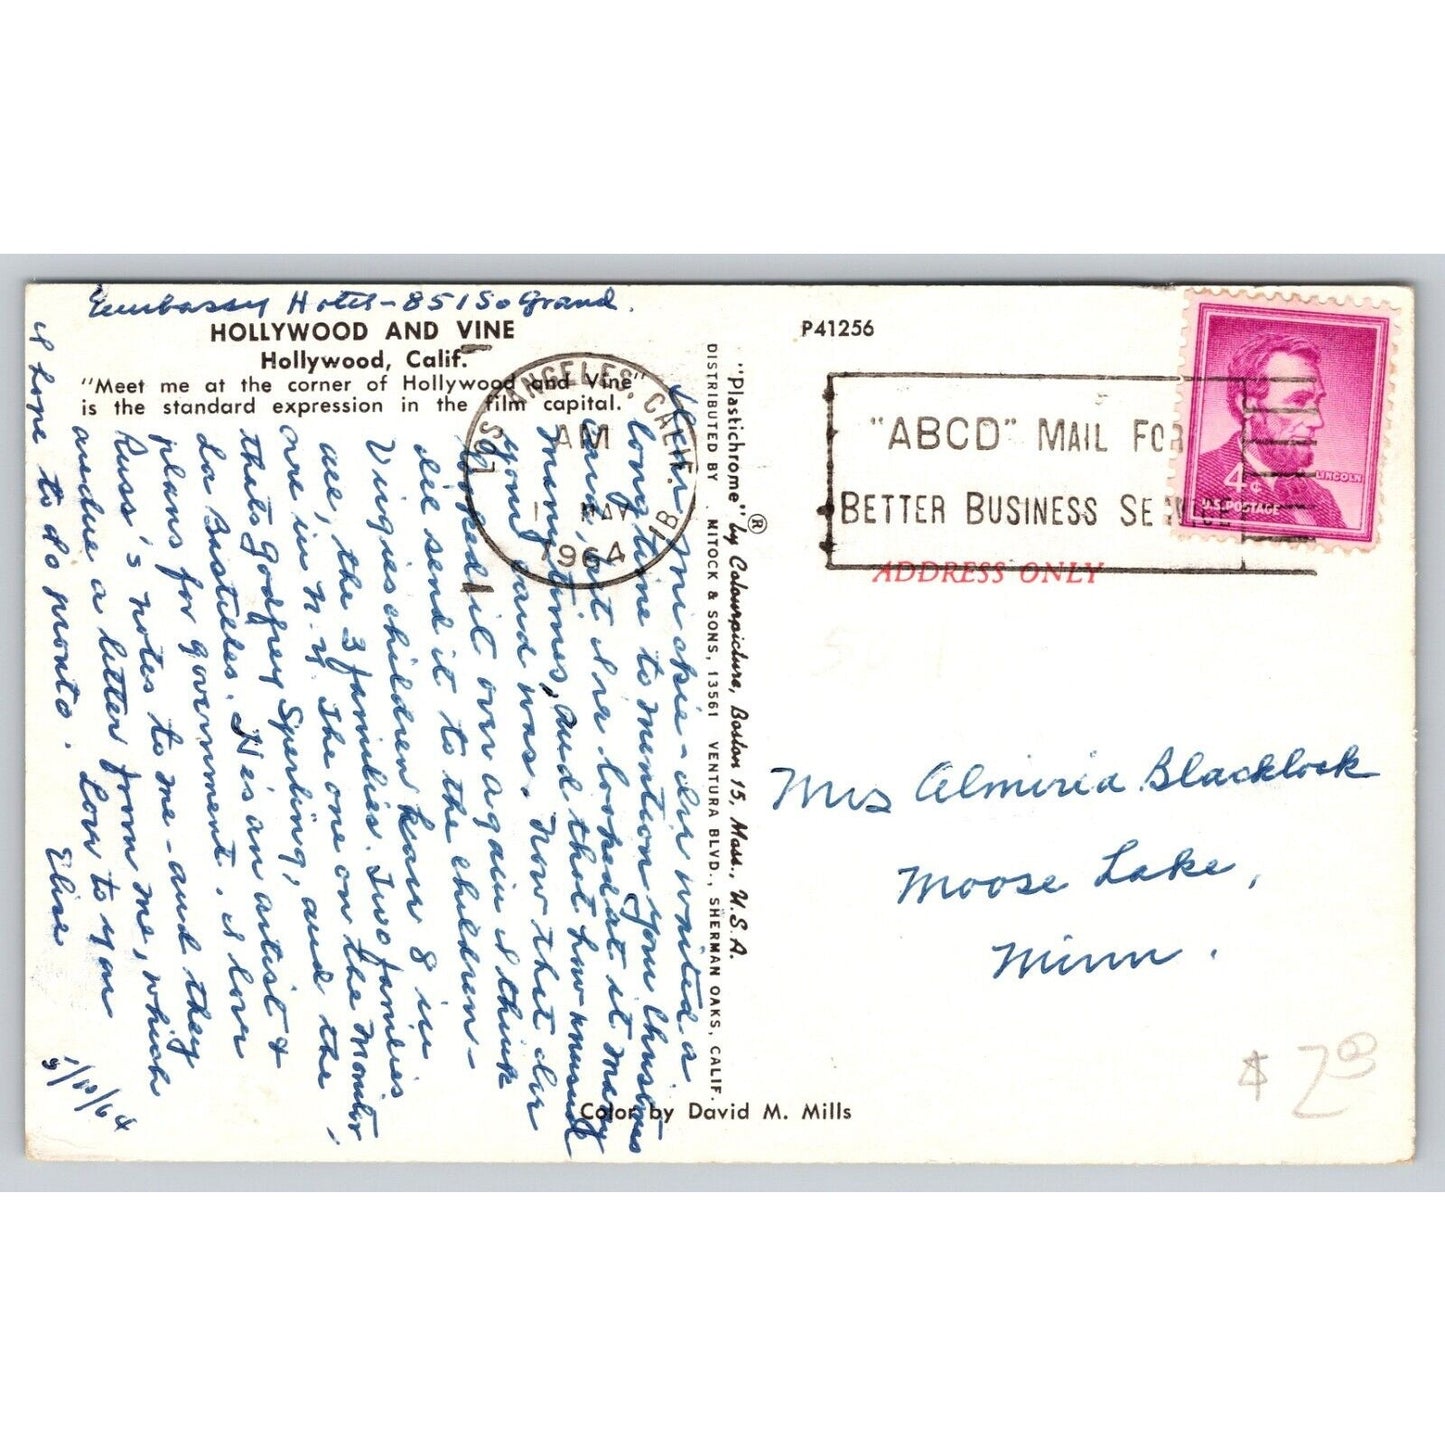 Embassy Hotel - 851 So Grand.
HOLLYWOOD AND VINE
Hollywood, Calif.
"Meet me at the corner of Hollywood and Vine"
is the standard expression in the film capital.
Dear Mickie - I've waited a
long time to mention your Christmas
card, but I've looked at it many
many times, and thot how unusual
yours card was. Now that I've
looked it over again I think
I'll send it to the children -
Virgies children have 8 in
all, the 3 families. Two families
are in N.Y. The one on the Monitor,
thats Godfrey Sperling, and the
La Bustilles. He's an artist &
plans for government. I love
Russ's notes to me - and they
are due a letter from me, which
I hope to do pronto. Love to you
Elise
5/10/64
"Plastichrome"® by Colourpicture, Boston 15, Mass., U.S.A.
DISTRIBUTED BY MITOCK & SONS, 13561 VENTURA BLVD., SHERMAN OAKS, CALIF.
Color by David M. Mills
P41256
LOS ANGELES, CALIF.
AM
1 MAY
1964
1B
"ABCD" MAIL FOR
BETTER BUSINESS SERVICE
4¢
LINCOLN
U.S. POSTAGE
ADDRESS ONLY
Mrs Almiria Blacklock
Moose Lake,
Minn.
$ 2.00